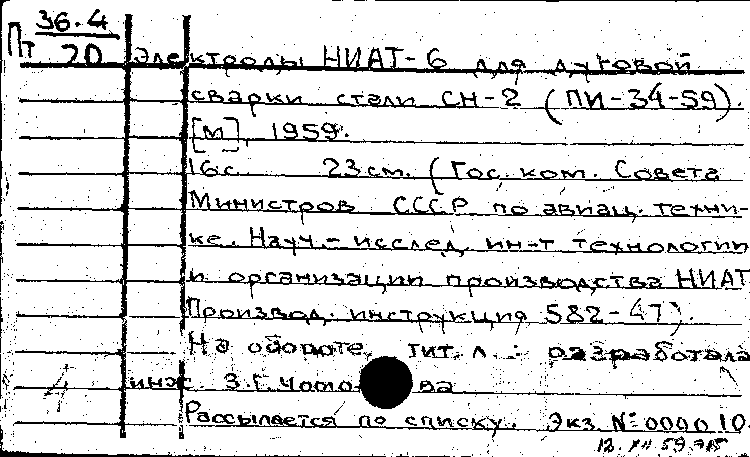 36.4
Пт 20 Электроды НИАТ-6 для дуговой
сварки стали СН-2 (ПИ-34-59).
[М], 1959.
16 с. 23 см. (Гос. ком. Совета
Министров СССР по авиац. техни-
ке. Науч.-исслед. ин-т технологии
и организации производства НИАТ
Производ. инструкция 582-47).
На обороте тит. л.: разработала
инж. З.Г.
Рассылается по списку. Экз. №000010
12.XII 59